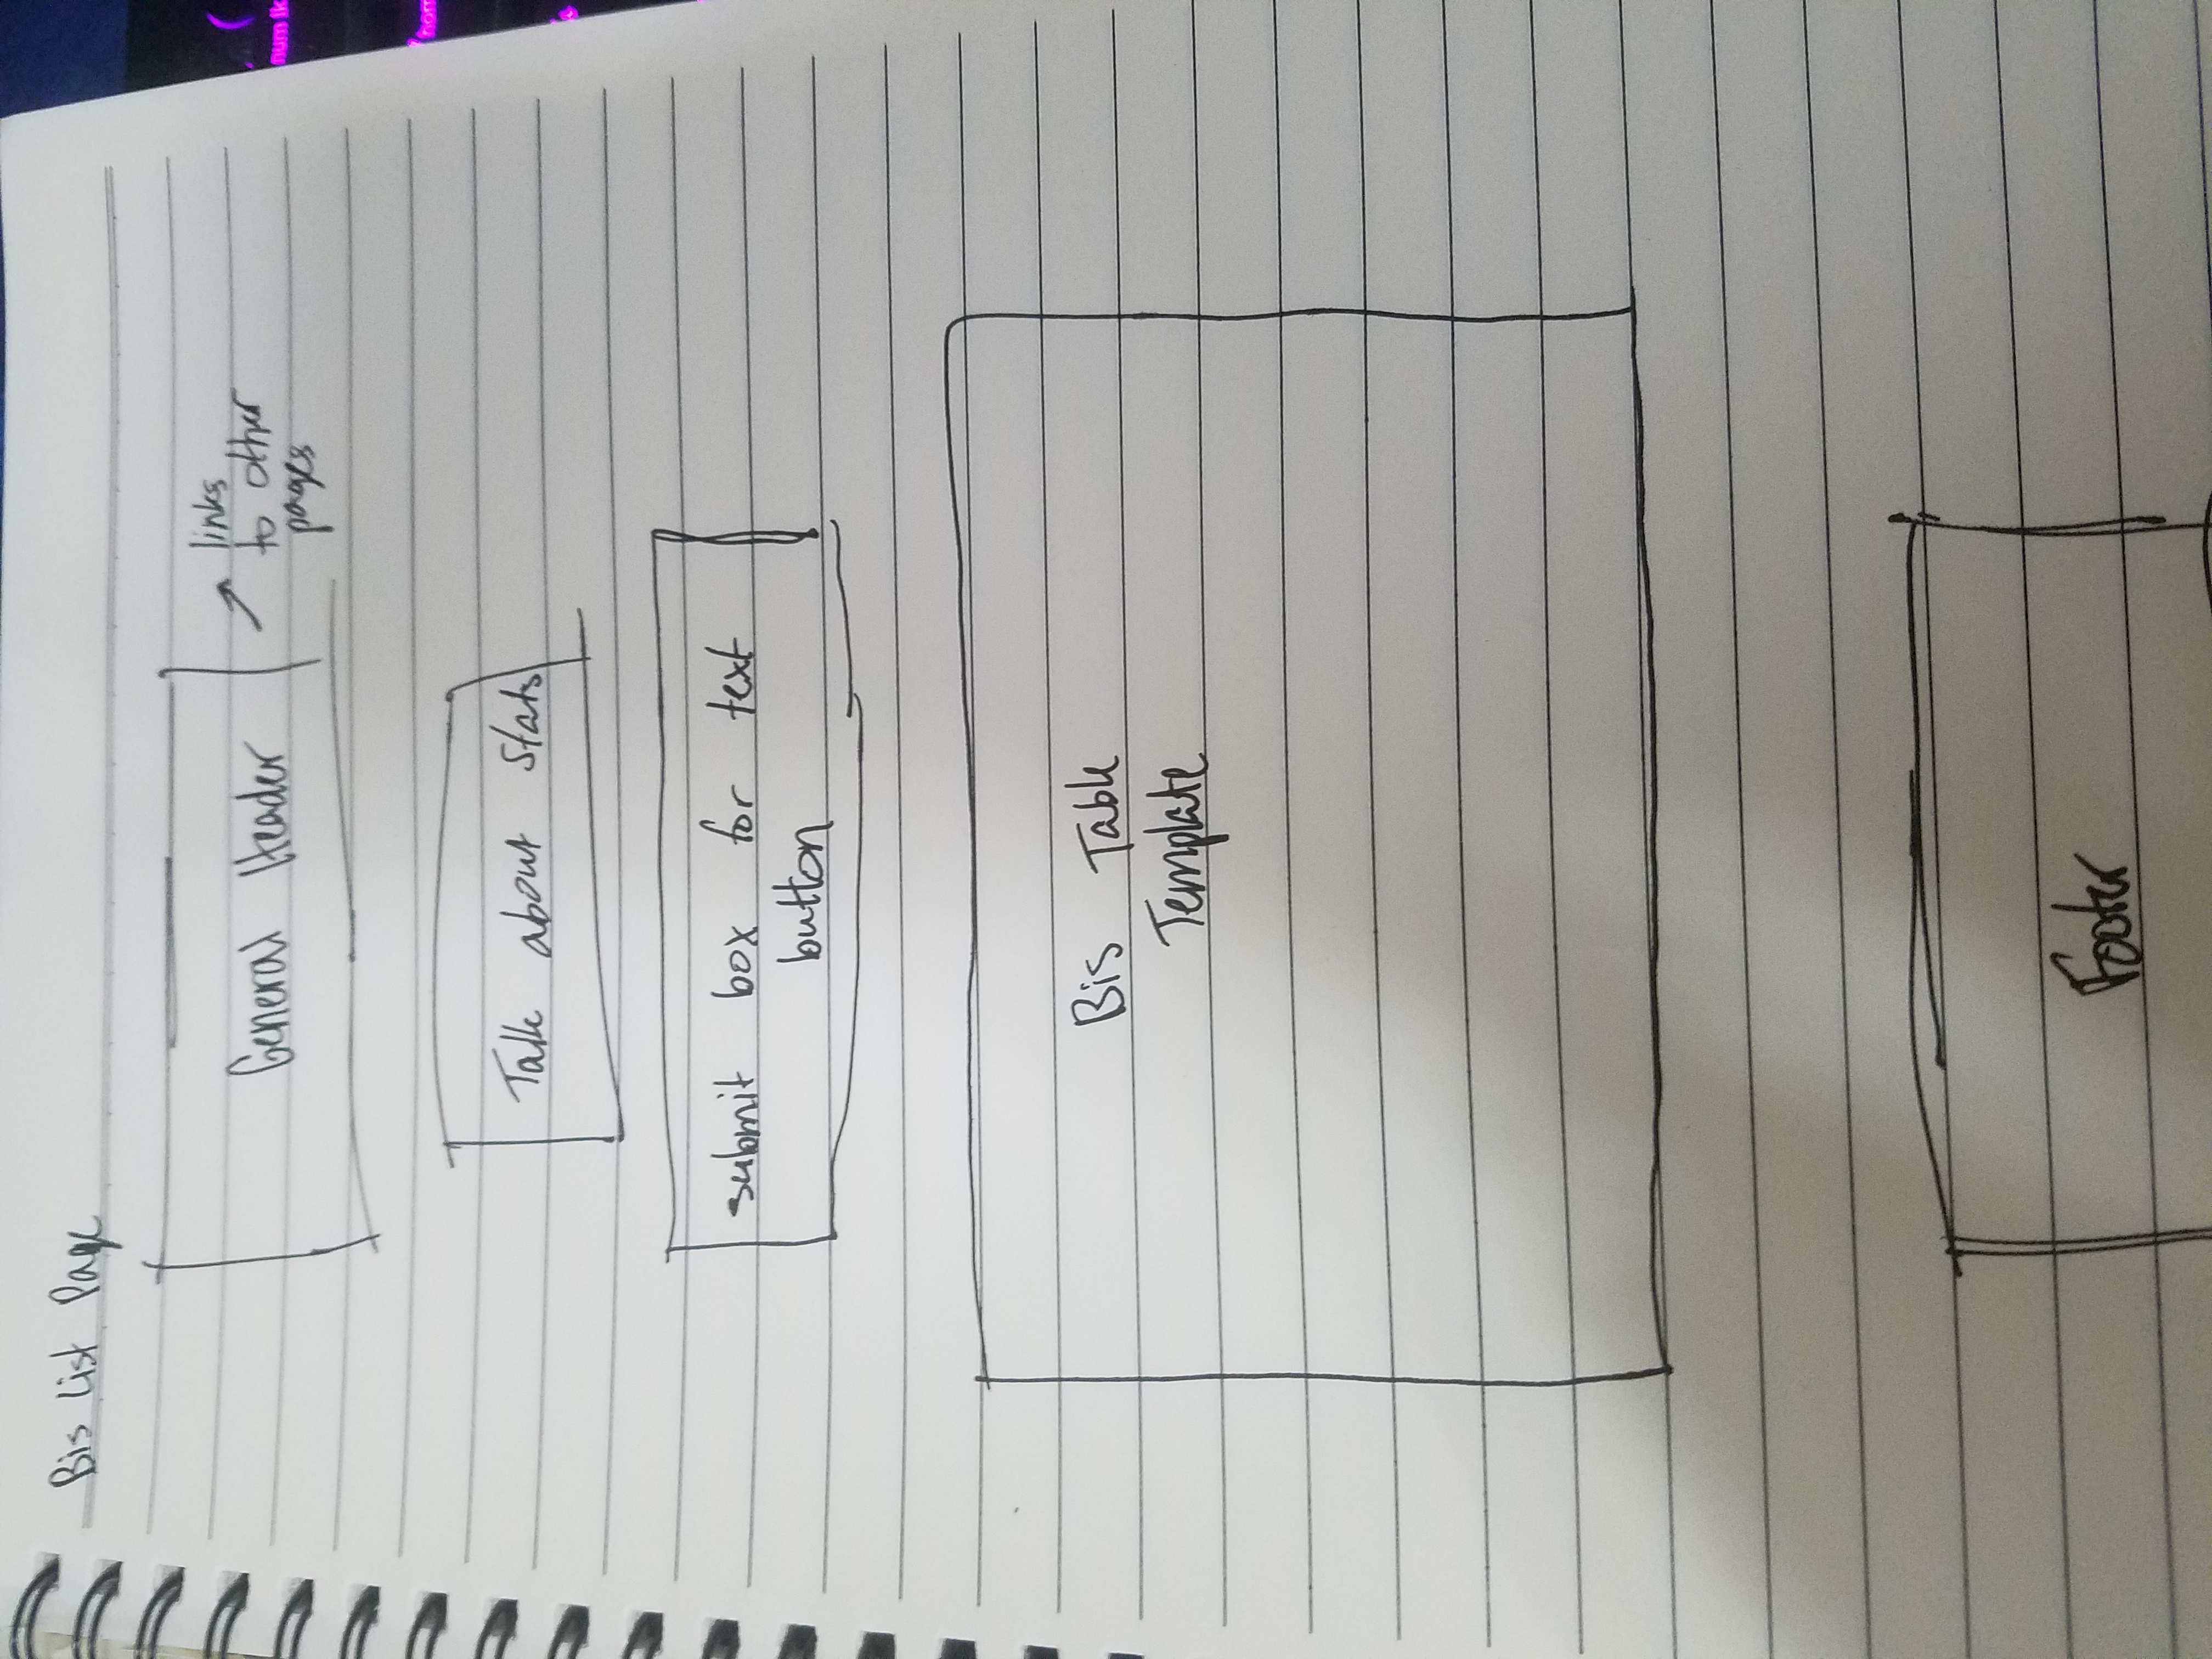 Bis List Page
General Header
links
to other
pages
Talk about Stats
submit box for text
button
Bis Table
Template
Footer
num lk
hom